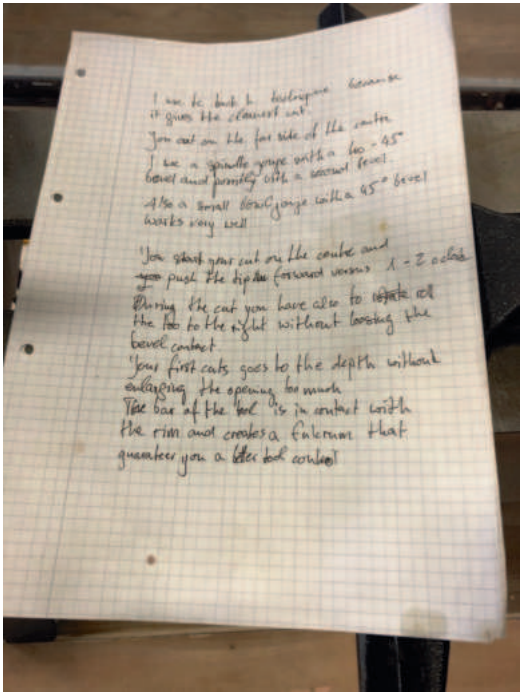 I use te back to technique because
it gives the cleanest cut.
You cut on the far side of the centre
I use a spindle gouge with a 40-45°
bevel and possibly with a second bevel.
Also a small bowlgouge with a 45° bevel
works very well
You start your cut on the centre and
push the tip forward versus 1-2 oclock
During the cut you have also to roll
the too to the right without loosing the
bevel contact.
Your first cuts goes to the depth without
enlarging the opening too much
The bar of the tool is in contact with
the rim and creates a fulcrum that
guarantees you a better tool control